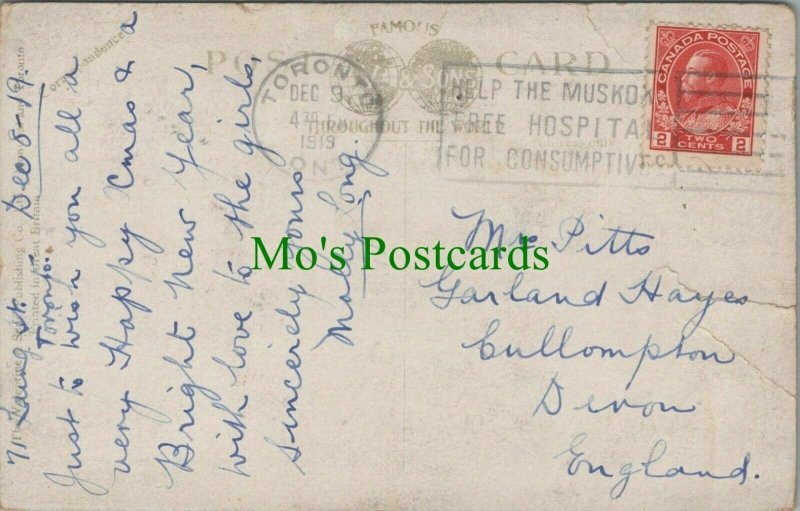 FAMOUS
POST CARD
& SONS
THROUGHOUT THE WORLD
TORONTO
DEC 9
4 30 P
1919
ONT
HELP THE MUSKOK
FREE HOSPITA
FOR CONSUMPTIV
CANADA POSTAGE
2 2
TWO
CENTS
Correspondence
Publishing Co.
Toronto
Printed in Great Britain
71 Laing st. Dec 8-19.
Toronto.
Just to wish you all a
very Happy Xmas & a
Bright New Year,
with love to the girls,
Sincerely yours
Molly Long.
Mrs Pitts
Garland Hayes
Cullompton
Devon
England.
Mo's Postcards